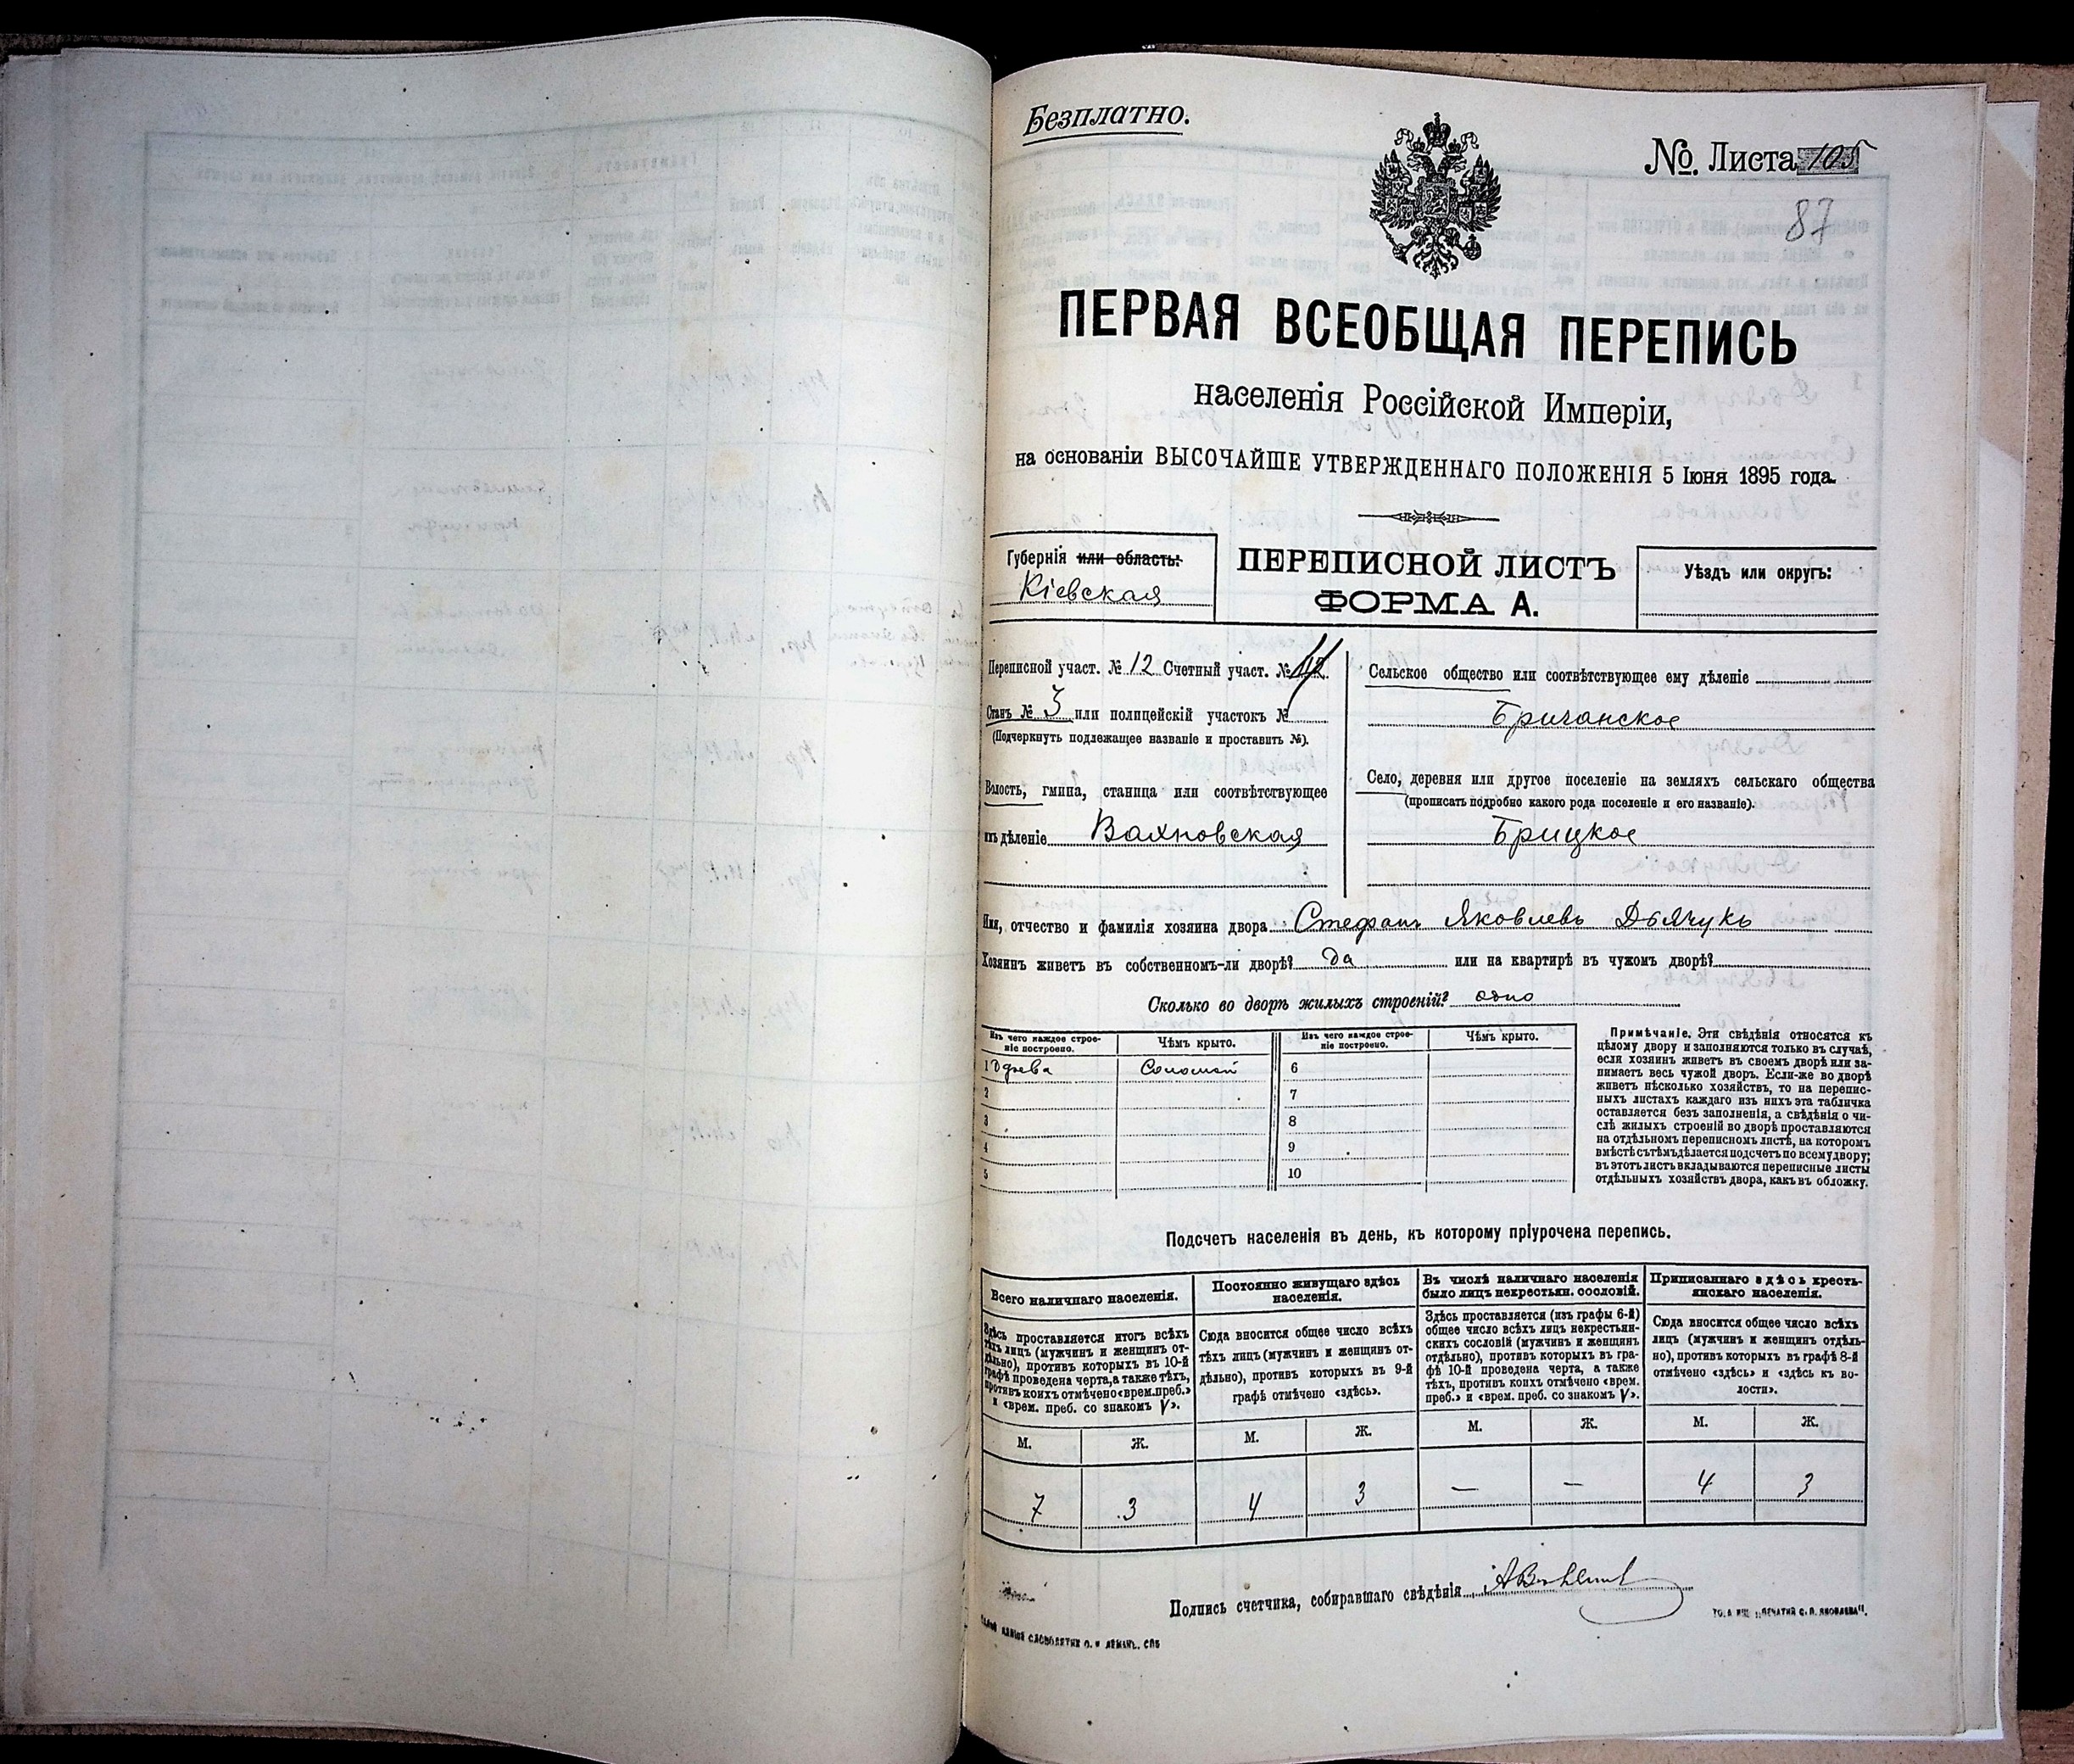 Безплатно.
№ Листа 105
87
ПЕРВАЯ ВСЕОБЩАЯ ПЕРЕПИСЬ
населенія Россійской Имперіи,
на основаніи ВЫСОЧАЙШЕ УТВЕРЖДЕННАГО ПОЛОЖЕНІЯ 5 Іюня 1895 года.
Губернія или область:
Кіевская
ПЕРЕПИСНОЙ ЛИСТЪ
ФОРМА А.
Уѣздъ или округъ:
Переписной участ. № 12 Счетный участ. №
Станъ № 3 или полицейскій участокъ №
(Подчеркнуть подлежащее названіе и проставить №).
Волость, гмина, станица или соотвѣтствующее
имъ дѣленіе Вахновская
Сельское общество или соотвѣтствующее ему дѣленіе
Бричанское
Село, деревня или другое поселеніе на земляхъ сельскаго общества
(прописать подробно какого рода поселеніе и его названіе).
Брицкое
Имя, отчество и фамилія хозяина двора Стефанъ Яковлевъ Дьячукъ
Хозяинъ живетъ въ собственномъ-ли дворѣ? да или на квартирѣ въ чужомъ дворѣ?
Сколько во дворѣ жилыхъ строеній? одно
Изъ чего каждое строе-
ніе построено.
Чѣмъ крыто.
Изъ чего каждое строе-
ніе построено.
Чѣмъ крыто.
1 Зъ древа Соломой 6
2 7
3 8
4 9
5 10
Примѣчаніе. Эти свѣдѣнія относятся къ
цѣлому двору и заполняются только въ случаѣ,
если хозяинъ живетъ въ своемъ дворѣ или за-
нимаетъ весь чужой дворъ. Если-же во дворѣ
живетъ нѣсколько хозяйствъ, то на перепис-
ныхъ листахъ каждаго изъ нихъ эта табличка
оставляется безъ заполненія, а свѣдѣнія о чи-
слѣ жилыхъ строеній во дворѣ проставляются
на отдѣльномъ переписномъ листѣ, на которомъ
вмѣстѣ съ тѣмъ дѣлается подсчетъ по всему двору;
въ этотъ листъ вкладываются переписные листы
отдѣльныхъ хозяйствъ двора, какъ въ обложку.
Подсчетъ населенія въ день, къ которому пріурочена перепись.
Всего наличнаго населенія.
Здѣсь проставляется итогъ всѣхъ
тѣхъ лицъ (мужчинъ и женщинъ от-
дѣльно), противъ которыхъ въ 10-й
графѣ проведена черта, а также тѣхъ,
противъ коихъ отмѣчено «врем. преб.»
и «врем. преб. со знакомъ V».
Постоянно живущаго здѣсь
населенія.
Сюда вносится общее число всѣхъ
тѣхъ лицъ (мужчинъ и женщинъ от-
дѣльно), противъ которыхъ въ 9-й
графѣ отмѣчено «здѣсь».
Въ числѣ наличнаго населенія
было лицъ некрестьян. сословій.
Здѣсь проставляется (изъ графы 6-й)
общее число всѣхъ лицъ некрестьян-
скихъ сословій (мужчинъ и женщинъ
отдѣльно), противъ которыхъ въ гра-
фѣ 10-й проведена черта, а также
тѣхъ, противъ коихъ отмѣчено «врем.
преб.» и «врем. преб. со знакомъ V».
Приписаннаго здѣсь кресть-
янскаго населенія.
Сюда вносится общее число всѣхъ
лицъ (мужчинъ и женщинъ отдѣль-
но), противъ которыхъ въ графѣ 8-й
отмѣчено «здѣсь» и «здѣсь къ во-
лости».
М. Ж. М. Ж. М. Ж. М. Ж.
7 3 4 3 — — 4 3
Подпись счетчика, собиравшаго свѣдѣнія